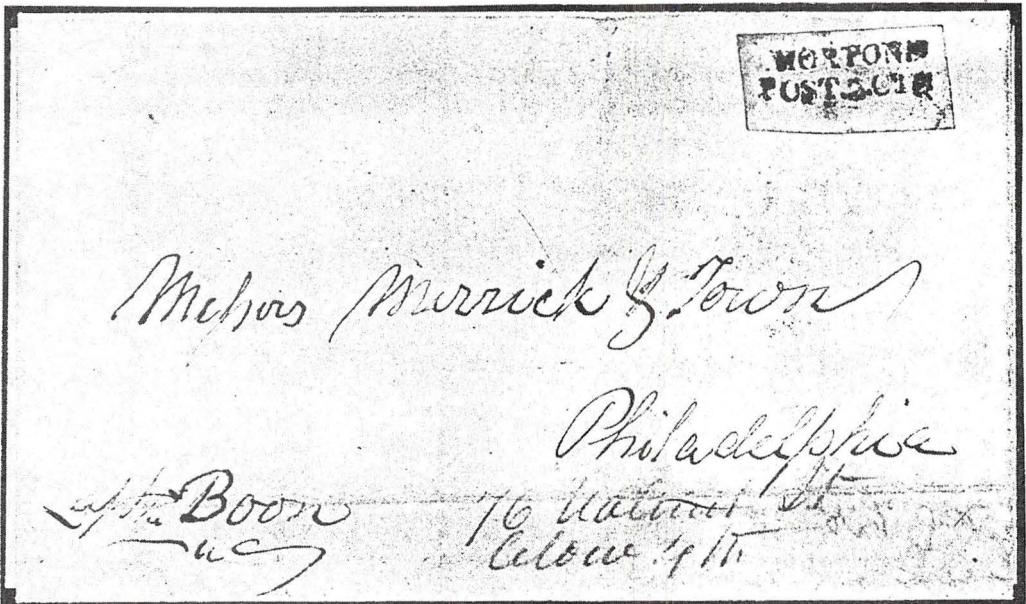 HORTON'S
POST.2.CTS
Messrs Merrick & Town
Philadelphia
Captn Boon
76 Walnut St
below 4th